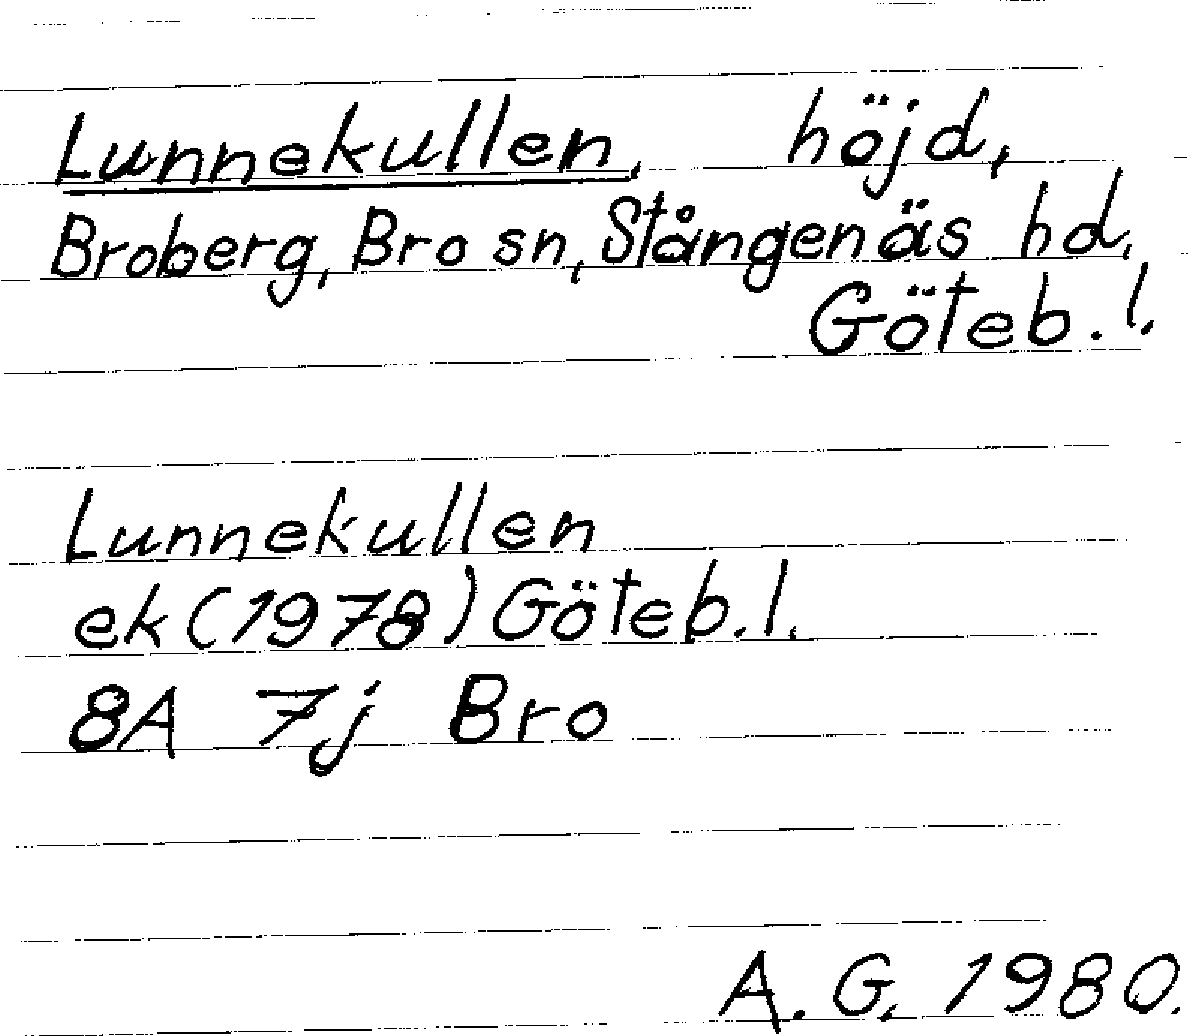 Lunnekullen, höjd,
Broberg, Bro sn, Stångenäs hd,
Göteb. l.
Lunnekullen
ek (1978) Göteb. l.
8A 7j Bro
A. G. 1980.